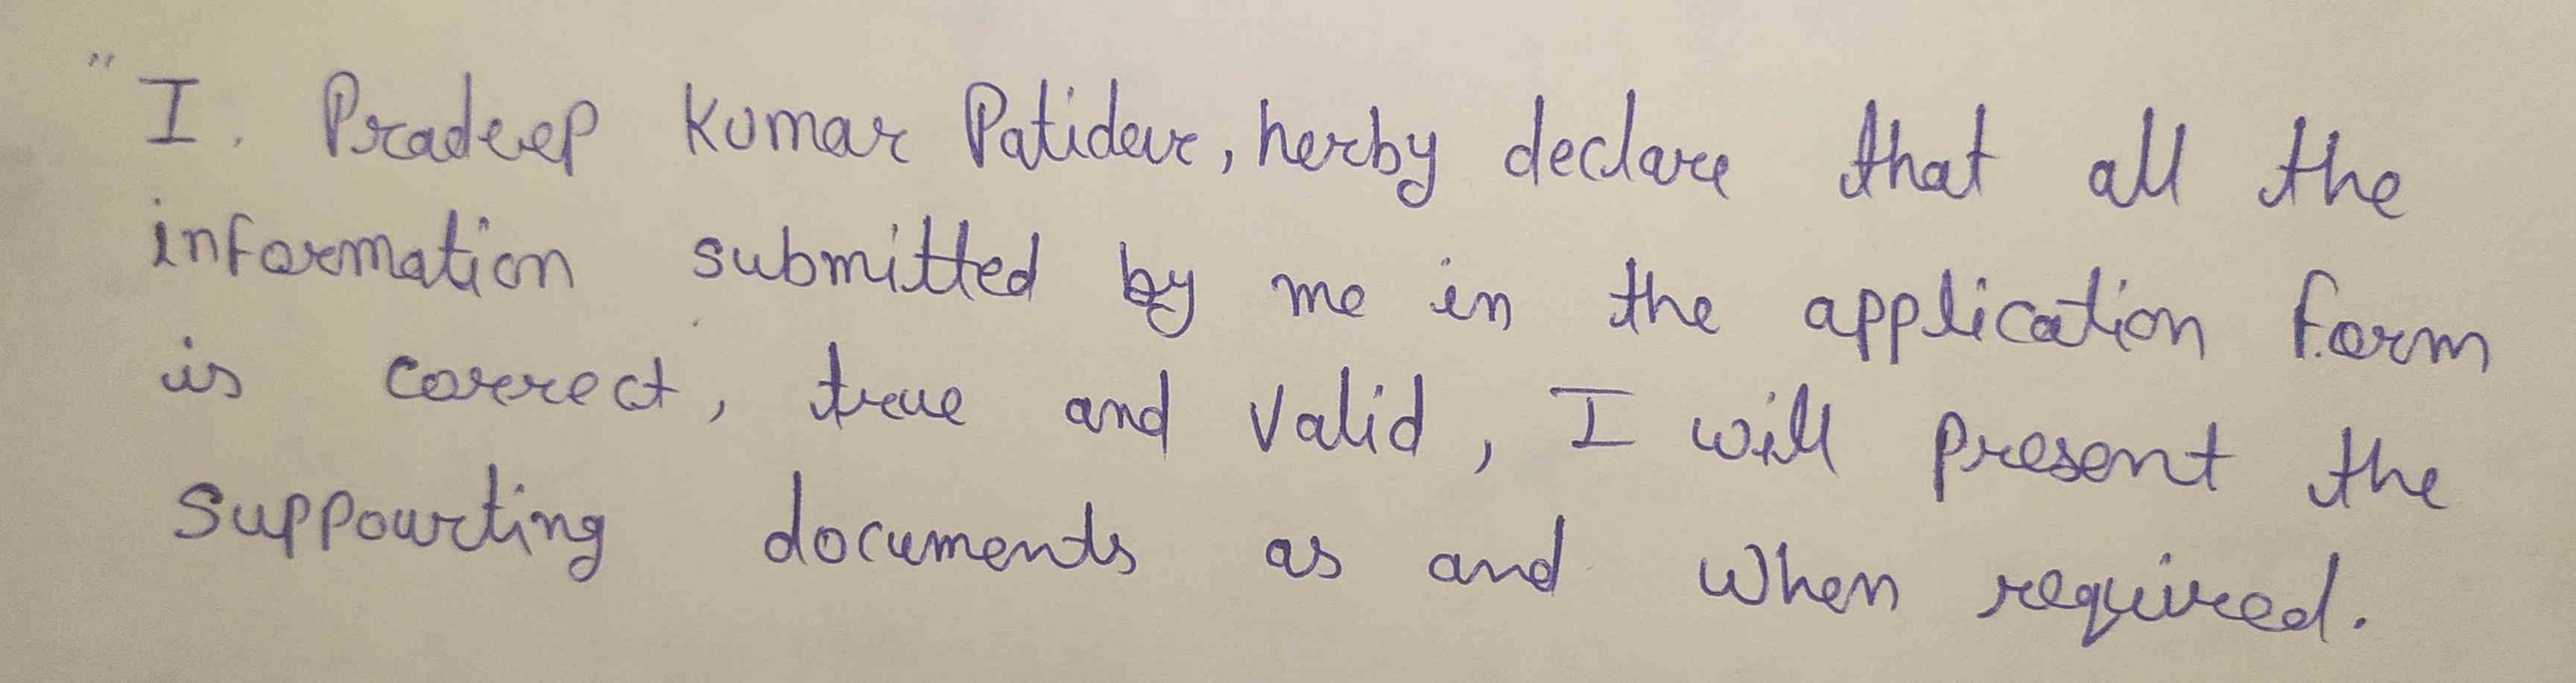 "I. Pradeep Kumar Patidar, herby declare that all the
information submitted by me in the application form
is correct, true and valid, I will present the
supporting documents as and when required.